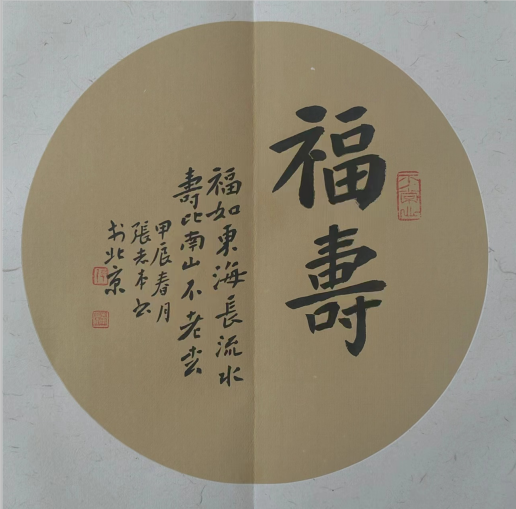 福壽
福如東海長流水
壽比南山不老松
甲辰春月
張志本书
於北京